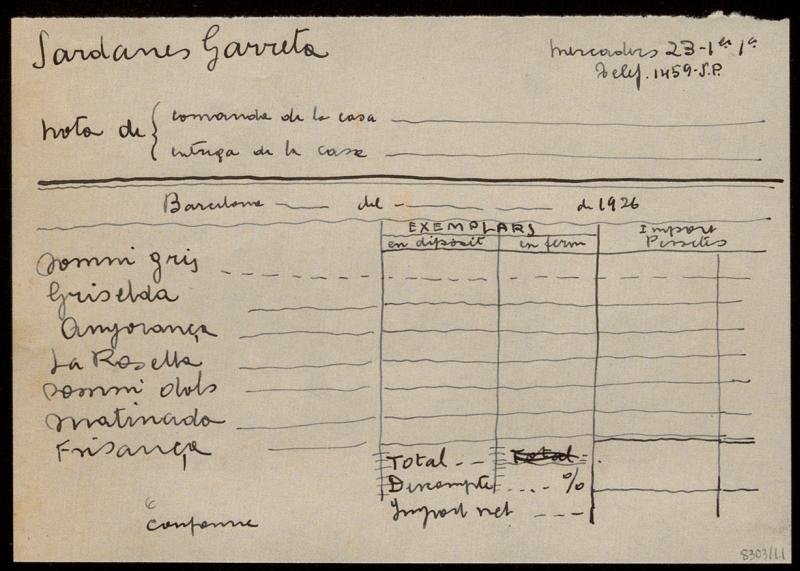 Sardanes Garreta
Mercaders 23-1er 1ª
Telef. 1459-S.P.
Nota de { comanda de la casa
entrega de la casa
Barcelona del de 1926
EXEMPLARS
Import
en dipòsit en ferm Pessetes
Somni gris
Griselda
Anyorança
La Rosella
Somni dols
Matinada
Frisança
Total Total
Descompte %
Import net
Conforme
8303/11